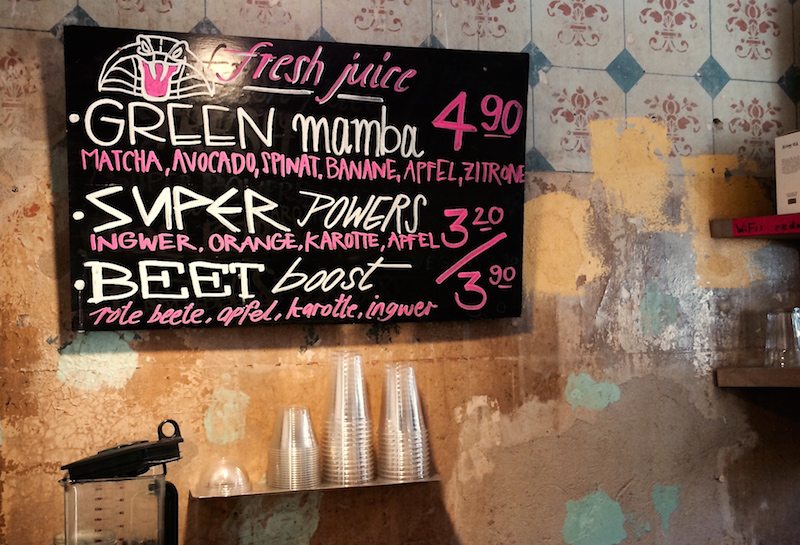 fresh juice
GREEN mamba 4 90
MATCHA, AVOCADO, SPINAT, BANANE, APFEL, ZITRONE
SUPER POWERS 3 20 /
INGWER, ORANGE, KAROTTE, APFEL
BEET boost 3 90
rote beete, apfel, karotte, ingwer
WiFi: